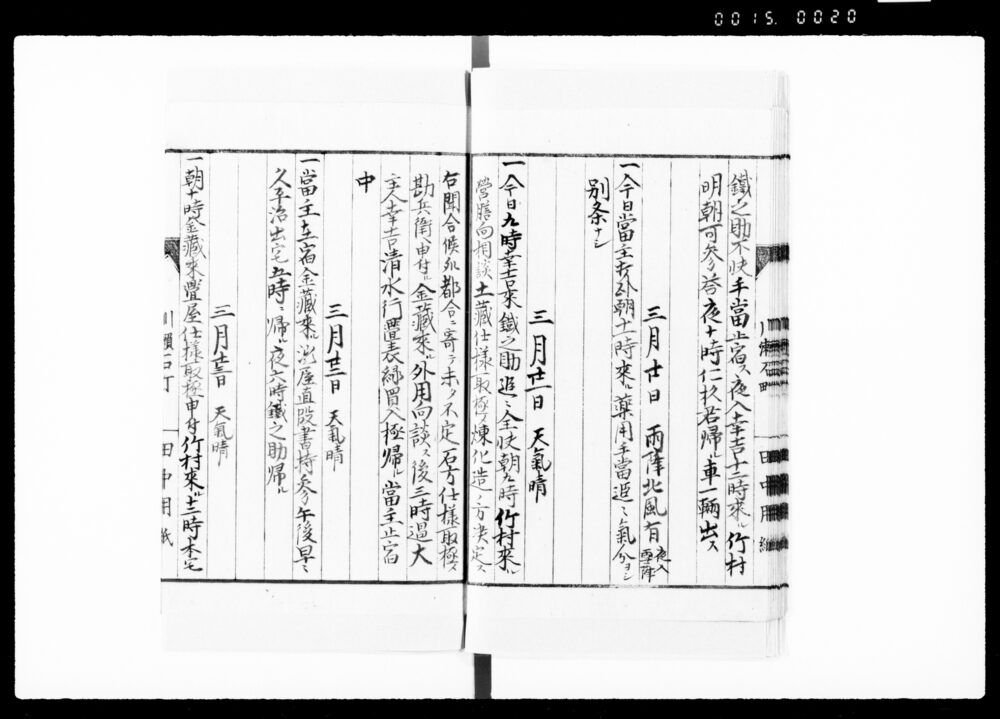 0015. 0020
鐵之助不快手當止宿ス夜入幸吉十二時來ル竹村
明朝可參答夜十時仁杉君帰ル車一輌出ス
三月廿日 雨降北風有 夜入雪降
一今日當主在外朝十一時來ル藥用手當追〻氣分ヨシ
別条ナシ
三月廿一日 天氣晴
一今日九時幸吉來鐵之助追〻全快朝九時竹村來ル
營膳向相談土藏仕様取極ノ煉化造ノ方决定ス
右聞合候処都合ニ寄テ未タ不定石方仕様取極ノ
勘兵衛ヘ申付ル金藏來ル外用向談ス後三時過大
主人幸吉清水行疊表縁買入極帰ル當主止宿
中
三月廿二日 天氣晴
一當主在宿金藏來ル 屋直段書持參午後早〻
久平治出宅五時〻帰ル夜六時鐵之助帰ル
三月廿三日 天氣晴
一朝十時金藏來疊屋仕様取極申付竹村來ル十二時本宅
川瀬石町 田中用紙